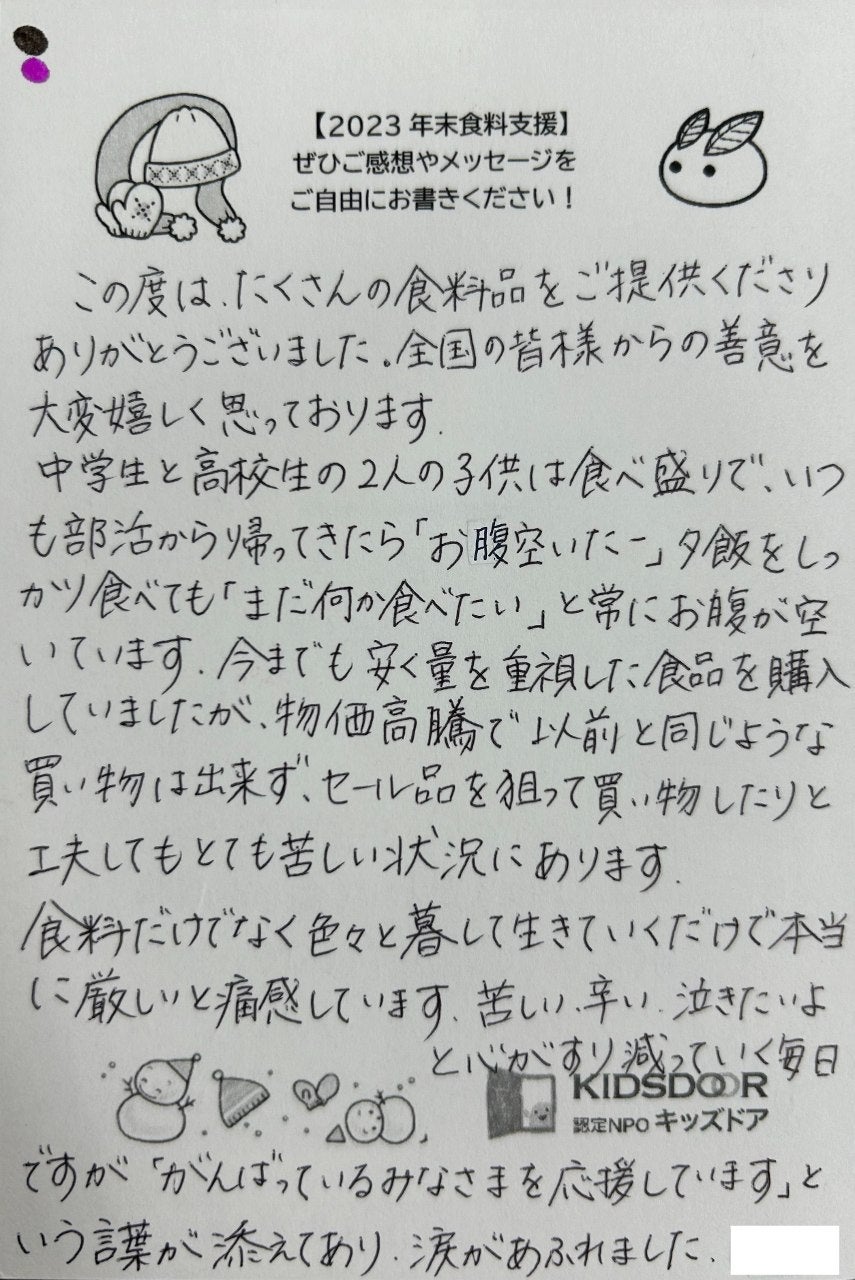 【2023 年末食料支援】
ぜひご感想やメッセージを
ご自由にお書きください！
この度は、たくさんの食料品をご提供くださり
ありがとうございました。全国の皆様からの善意を
大変嬉しく思っております。
中学生と高校生の2人の子供は食べ盛りで、いつ
も部活から帰ってきたら「お腹空いたー」夕飯をしっ
かり食べても「まだ何か食べたい」と常にお腹が空
いています。今までも安く量を重視した食品を購入
していましたが、物価高騰で以前と同じような
買い物は出来ず、セール品を狙って買い物したりと
工夫してもとても苦しい状況にあります。
食料だけでなく色々と暮して生きていくだけで本当
に厳しいと痛感しています。苦しい、辛い、泣きたいよ
と心がすり減っていく毎日
KIDSDOOR
認定NPO キッズドア
ですが「がんばっているみなさまを応援しています」と
いう言葉が添えてあり、涙があふれました。